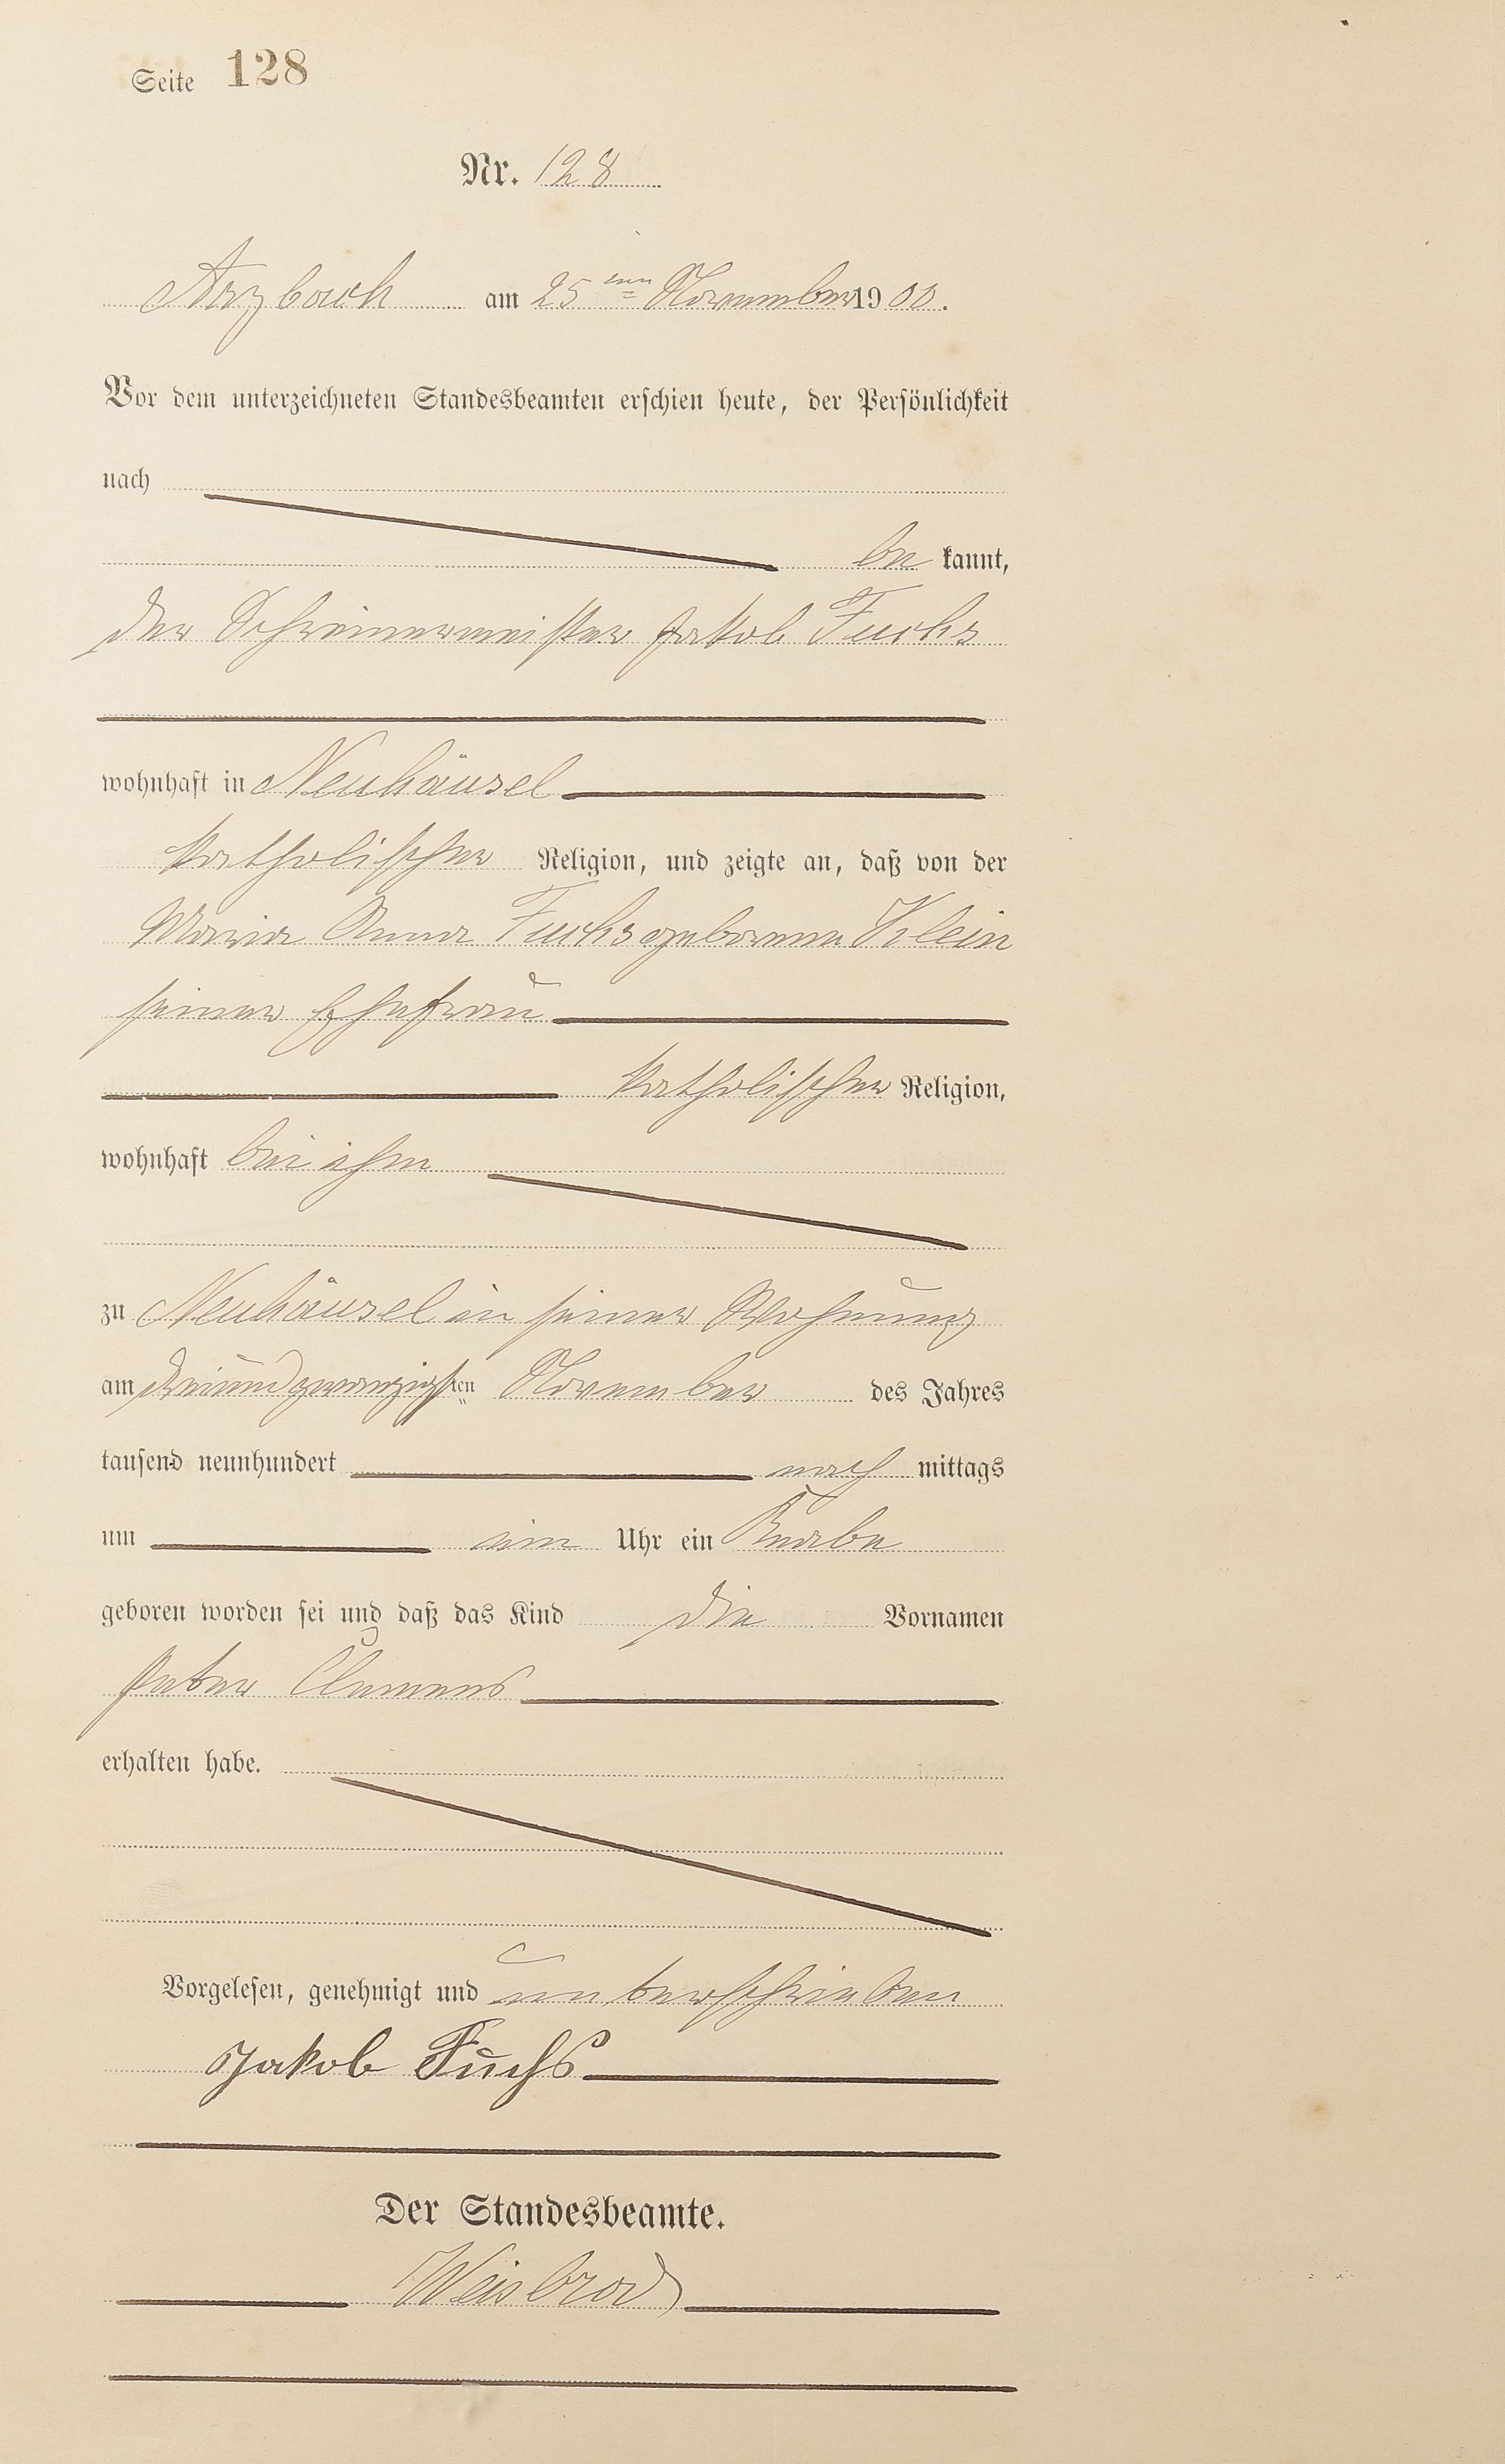 Seite 128
Nr. 128
Arzbach am 25ten November 1900.
Vor dem unterzeichneten Standesbeamten erschien heute, der Persönlichkeit
nach
be kannt,
der Schreinermeister Jakob Fuchs
wohnhaft in Neuhäusel
katholischer Religion, und zeigte an, daß von der
Maria Anna Fuchs geborene Klein
seiner Ehefrau
katholischer Religion,
wohnhaft bei ihm
zu Neuhäusel in seiner Wohnung
am dreiundzwanzigsten November des Jahres
tausend neunhundert nach mittags
um ein Uhr ein Knabe
geboren worden sei und daß das Kind die Vornamen
Peter Clemens
erhalten habe.
Vorgelesen, genehmigt und unterschrieben
Jakob Fuchs
Der Standesbeamte.
Weisbrod